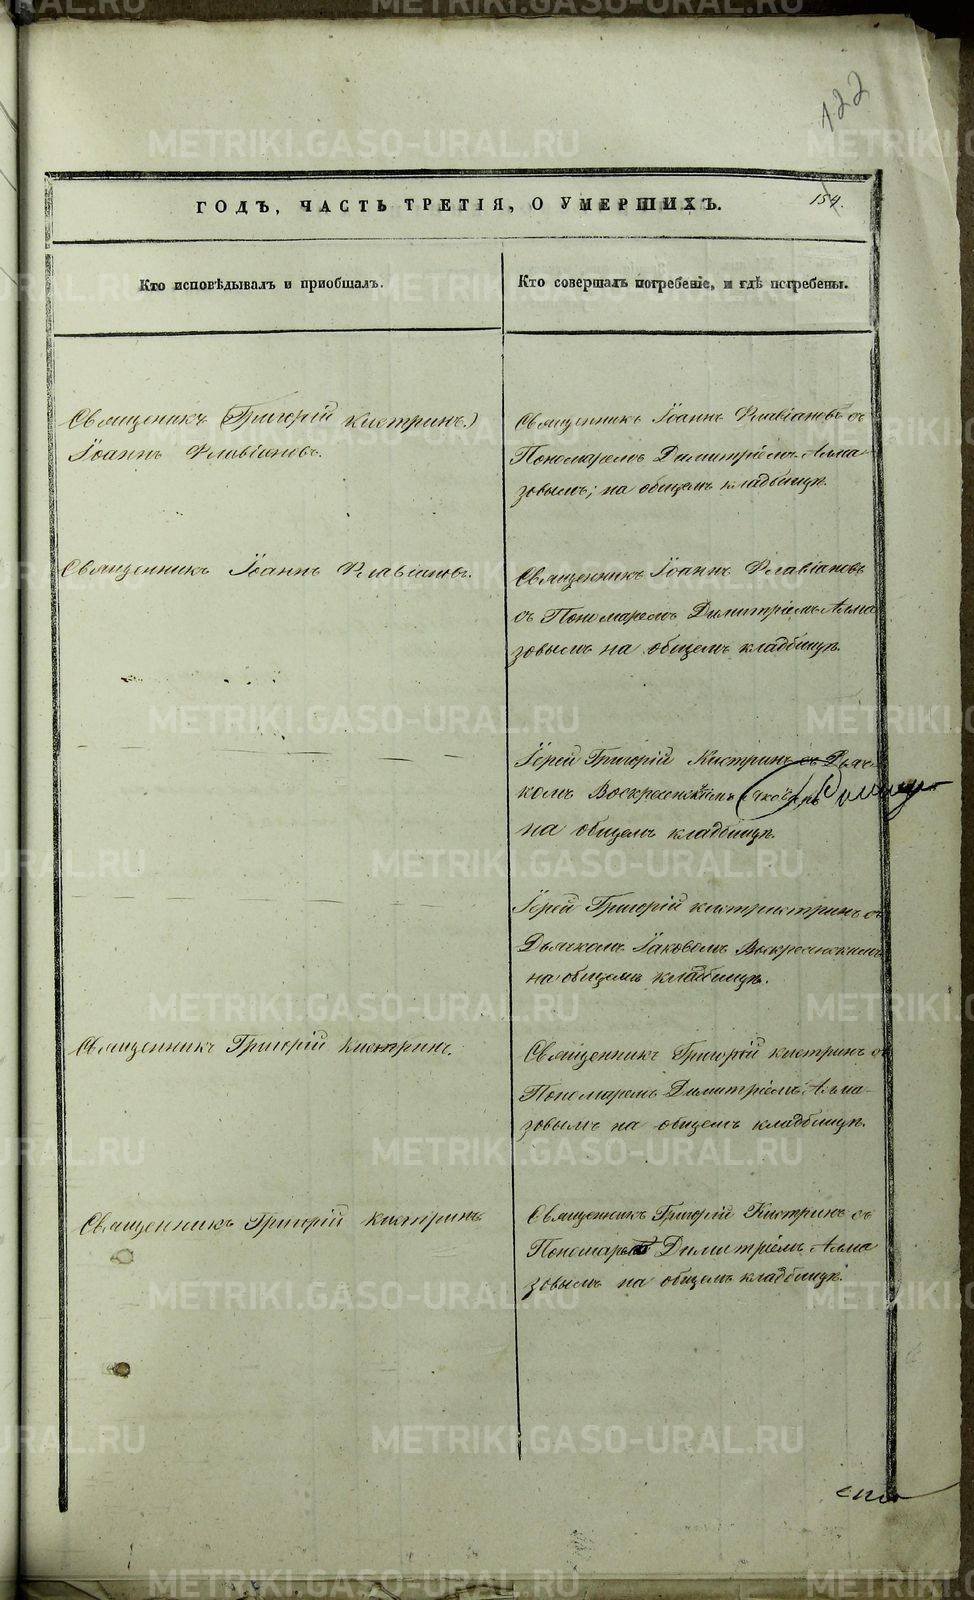 122
154.
ГОДЪ, ЧАСТЬ ТРЕТІЯ, О УМЕРШИХЪ.
Кто исповѣдывалъ и приобщалъ.
Кто совершалъ погребеніе, и гдѣ погребены.
Священникъ (Григорій Кистринъ)
Іоаннъ Флавіановъ.
Священникъ Іоаннъ Флавіановъ съ
Пономаремъ Димитріемъ Алма-
зовымъ; на общемъ кладбищѣ.
Священникъ Іоаннъ Флавіановъ.
Священникъ Іоаннъ Флавіановъ
съ Пономаремъ Димитріемъ Алма
зовымъ на общемъ кладбищѣ.
Іерей Григорій Кистринъ съ Дьяч-
комъ Воскресенскимъ
на общемъ кладбищѣ.
Іерей Григорій кистристринъ съ
Дьячкомъ Іаковомъ Воскресенскимъ
на общемъ кладбищѣ.
Священникъ Григорій Кистринъ.
Священникъ Григорій кистринъ съ
Пономаремъ Димитріемъ Алма-
зовымъ на общемъ кладбищѣ.
Священникъ Григорій Кистринъ
Священникъ Григорій Кистринъ съ
Пономаремъ Димитріемъ Алма
зовымъ на общемъ кладбищѣ.
METRIKI.GASO-URAL.RU